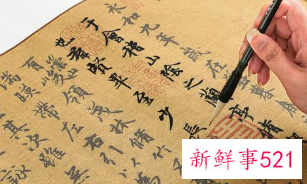 永和九年歲在
于會稽山陰之蘭亭
也羣賢畢至少長
領茂林脩竹
湍暎帶左右引
其次雖無
新鲜事521